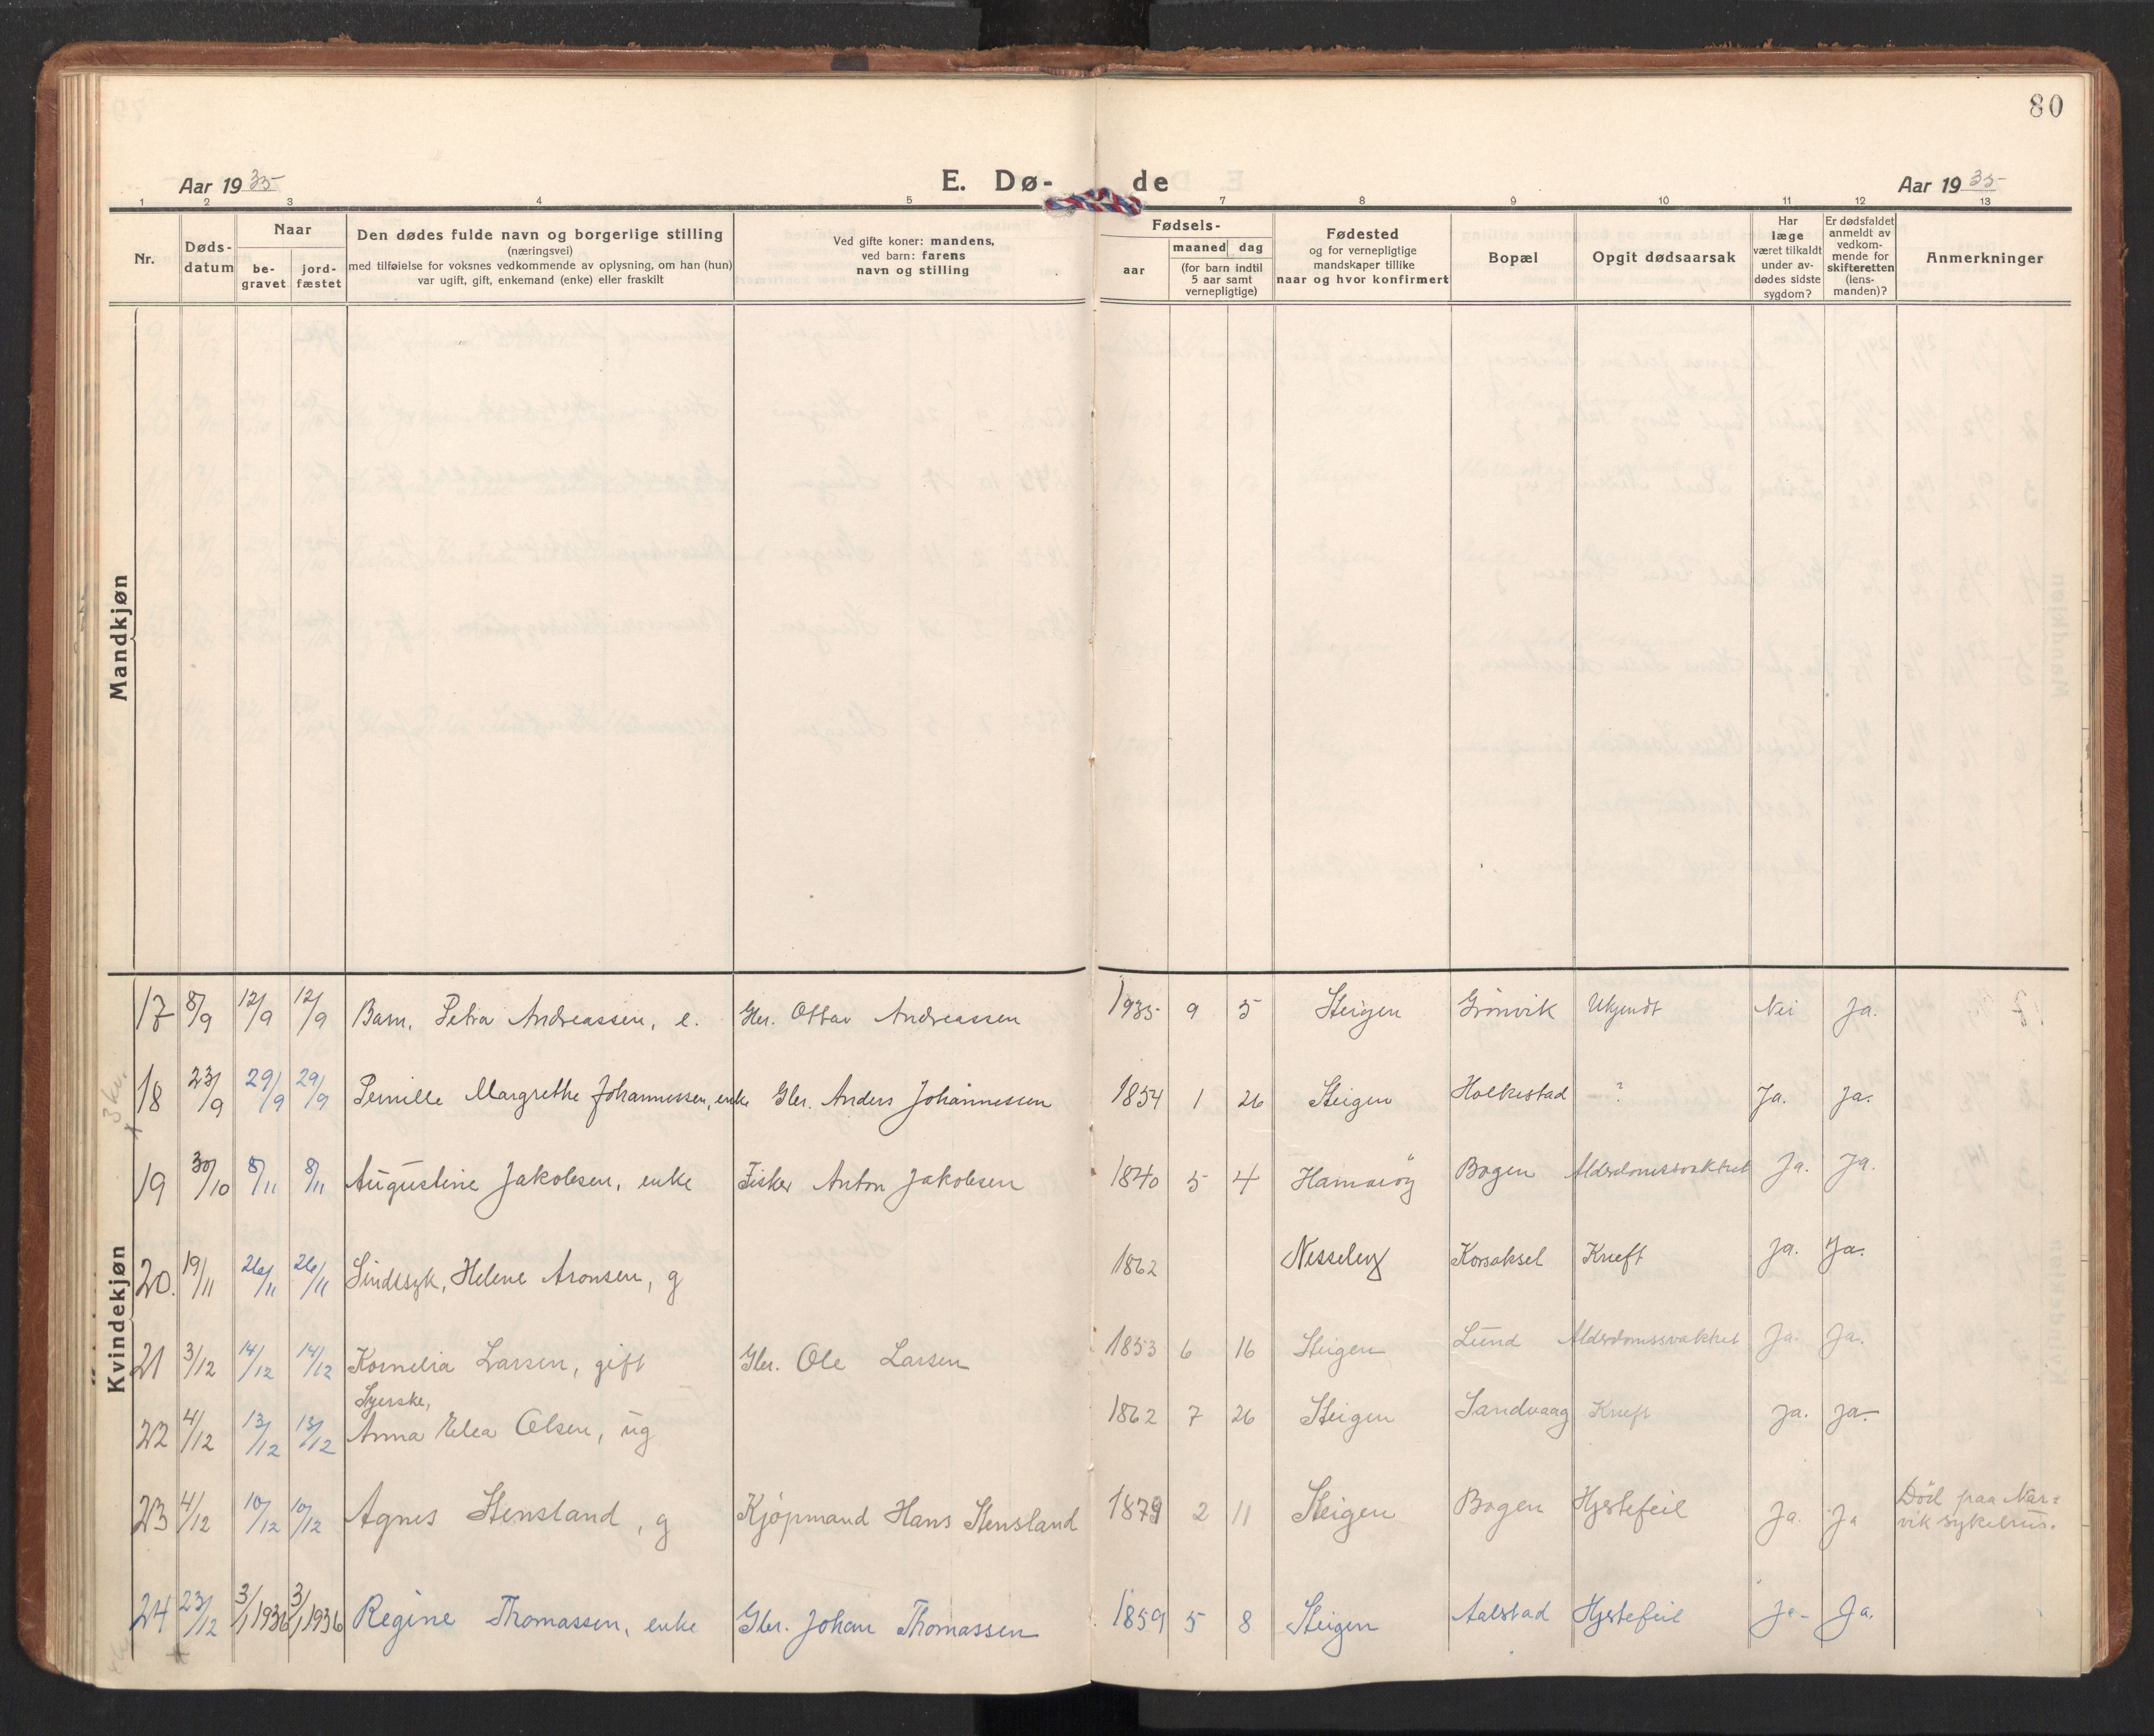 80
Aar 1935
E. Dø-
de
Aar 1935
1 2 3 4 5 7 8 9 10 11 12 13
Nr.
Døds-
datum
Naar
be-
gravet
jord-
fæstet
Den dødes fulde navn og borgerlige stilling
(næringsvei)
med tilføielse for voksnes vedkommende av oplysning, om han (hun)
var ugift, gift, enkemand (enke) eller fraskilt
Ved gifte koner: mandens,
ved barn: farens
navn og stilling
Fødsels-
aar
maaned dag
(for barn indtil
5 aar samt
vernepligtige)
Fødested
og for vernepligtige
mandskaper tillike
naar og hvor konfirmert
Bopæl
Opgit dødsaarsak
Har
læge
været tilkaldt
under av-
dødes sidste
sygdom?
Er dødsfaldet
anmeldt av
vedkom-
mende for
skifteretten
(lens-
manden)?
Anmerkninger
Mandkjøn
Kvindekjøn
17 8/9 12/9 12/9 Barn, Petra Andreassen, e. Gbr. Ottar Andreassen 1935 9 5 Steigen Grönvik Ukjendt Nei Ja.
3 kv.
18 23/9 29/9 29/9 Pernille Margrethe Johannessen, enke Gbr. Anders Johannessen 1854 1 26 Steigen Holkestad ? Ja. Ja.
19 30/10 8/11 8/11 Augustine Jakobsen, enke Fisker Anton Jakobsen 1840 5 4 Hamaröy Bogen Alderdomssvakhet Ja. Ja.
20. 19/11 26/11 26/11 Sindssyk, Helene Aronsen, g 1862 Nesseby Korsaksel Kræft Ja. Ja.
21 3/12 14/12 14/12 Kornelia Larsen, gift Gbr. Ole Larsen 1853 6 16 Steigen Lund Alderdomssvakhet Ja. Ja.
Syerske,
22 4/12 13/12 13/12 Anna Elea Olsen, ug 1862 7 26 Steigen Sandvaag Kræft Ja. Ja.
23 4/12 10/12 10/12 Agnes Stensland, g Kjøpmand Hans Stensland 1879 2 11 Steigen Bogen Hjertefeil Ja. Ja Död paa Nar=
vik sykehus.
24 23/12 3/1 1936 3/1 1936 Regine Thomassen, enke Gbr. Johan Thomassen 1859 5 8 Steigen Aalstad Hjertefeil Ja- Ja.